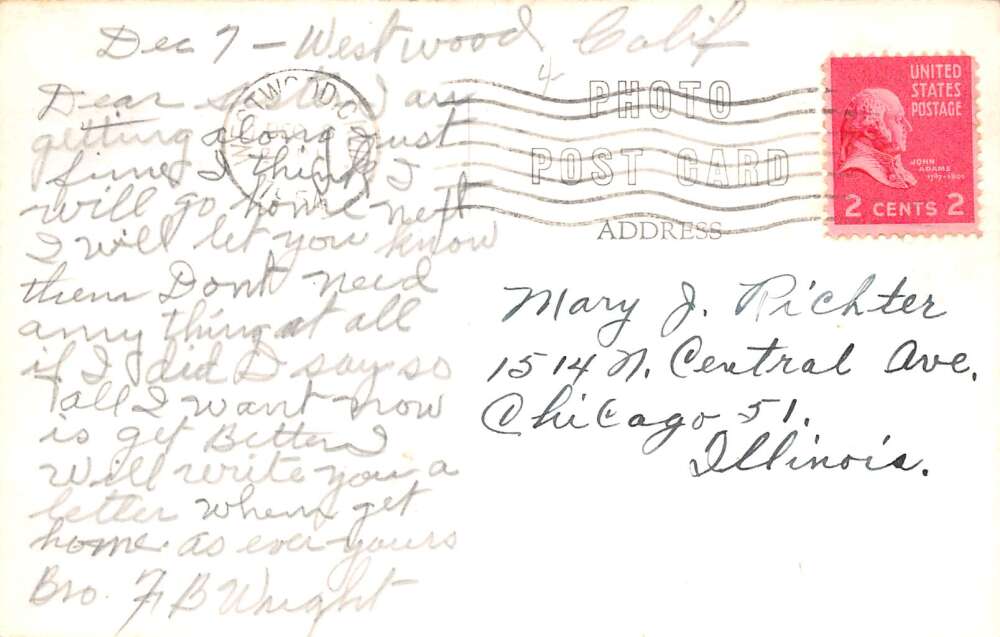 Dec 7 - Westwood, Calif
Dear sister I am
getting along just
fine I think I
will go home next
I will let you know
them Dont need
anny thing at all
if I did I say so
all I want now
is get Better I
will write you a
letter when get
home. as ever yours
Bro. F B Wright
PHOTO
POST CARD
ADDRESS
UNITED
STATES
POSTAGE
JOHN
ADAMS
1797-1801
2 CENTS 2
Mary J. Richter
1514 N. Central Ave.
Chicago 51.
Illinois.